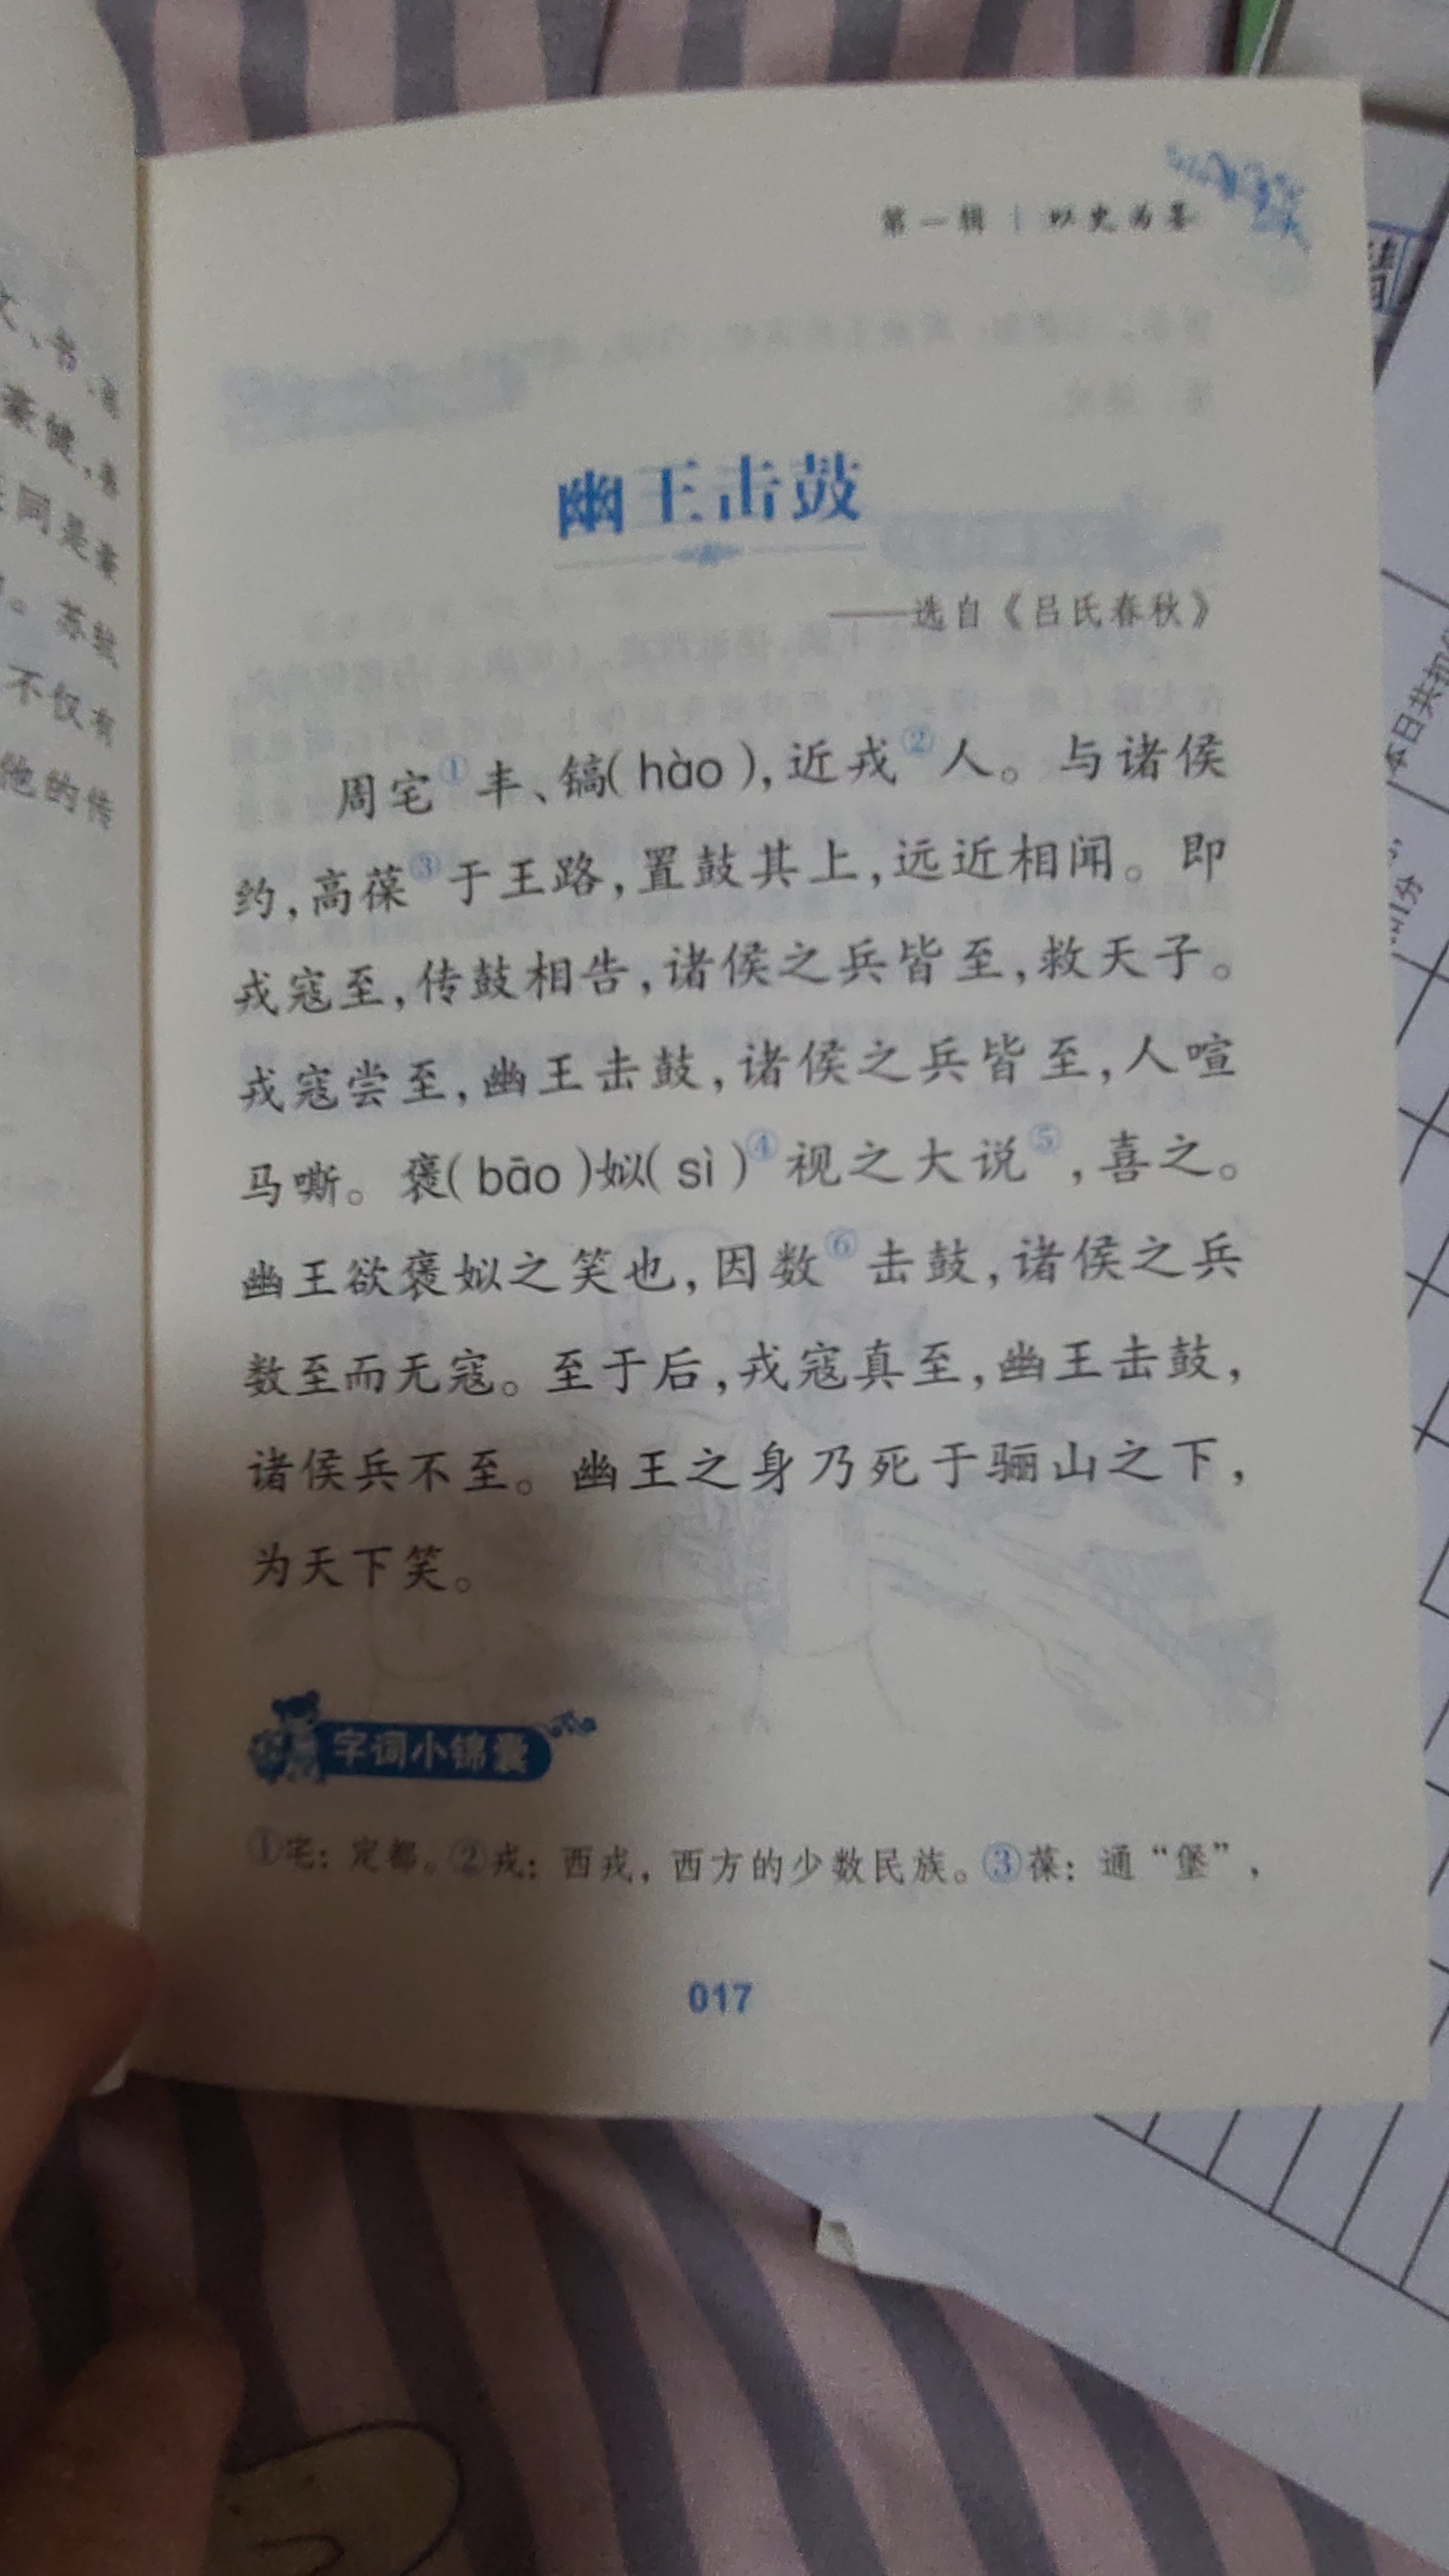 文、书、
豪健,
同是豪
。苏轼
不仅有
他的传
第一辑 | 以史为鉴
幽王击鼓
——选自《吕氏春秋》
周宅①丰、镐(hào),近戎②人。与诸侯
约,高葆③于王路,置鼓其上,远近相闻。即
戎寇至,传鼓相告,诸侯之兵皆至,救天子。
戎寇尝至,幽王击鼓,诸侯之兵皆至,人喧
马嘶。褒(bāo)姒(sì)④视之大说⑤,喜之。
幽王欲褒姒之笑也,因数⑥击鼓,诸侯之兵
数至而无寇。至于后,戎寇真至,幽王击鼓,
诸侯兵不至。幽王之身乃死于骊山之下,
为天下笑。
字词小锦囊
①宅:定都。②戎:西戎,西方的少数民族。③葆:通“堡”,
017
本日共扣
二分